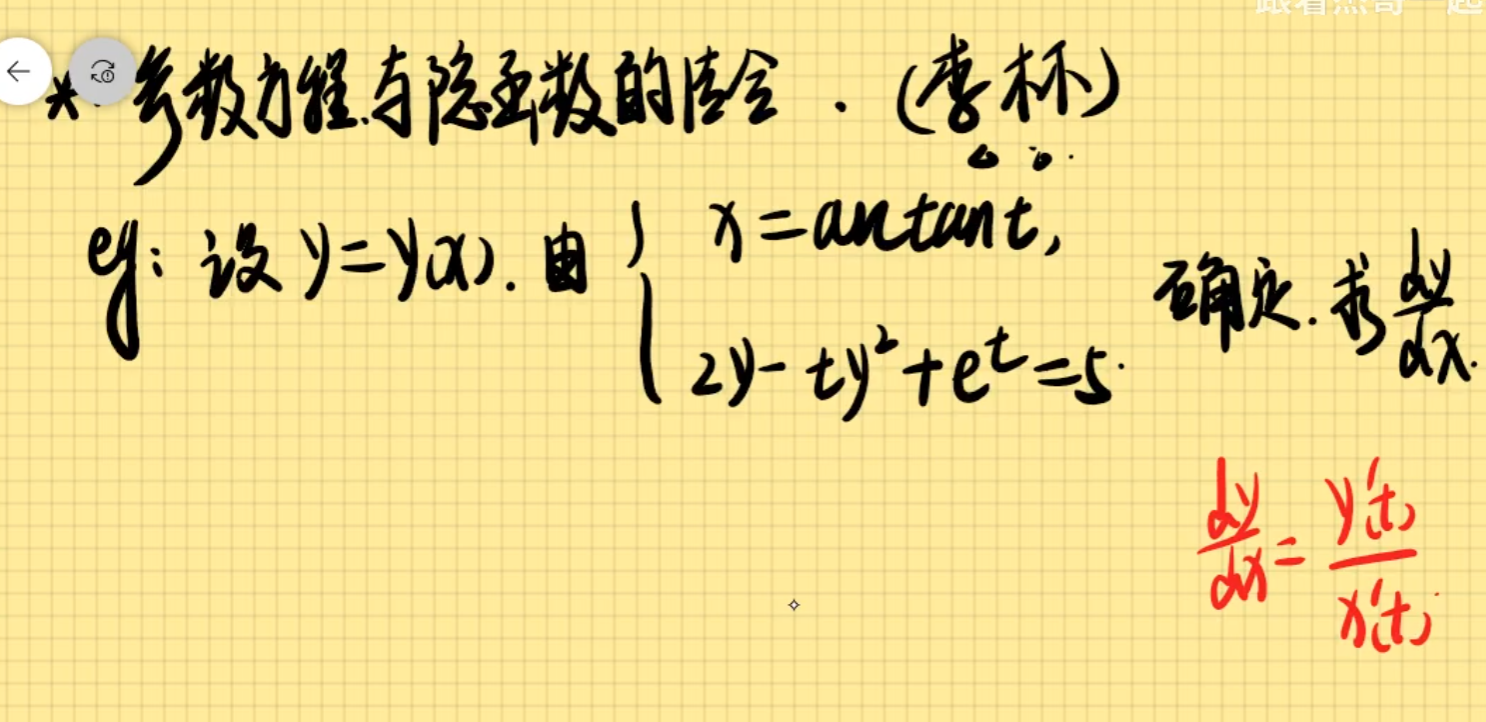 跟着杰哥一起
* 参数方程与隐函数的结合. (李林)
eg: 设 y=y(x). 由 { x=arctant, 2y-ty²+e^t=5. 确定. 求 dy/dx.
dy/dx = y'(t)/x'(t)